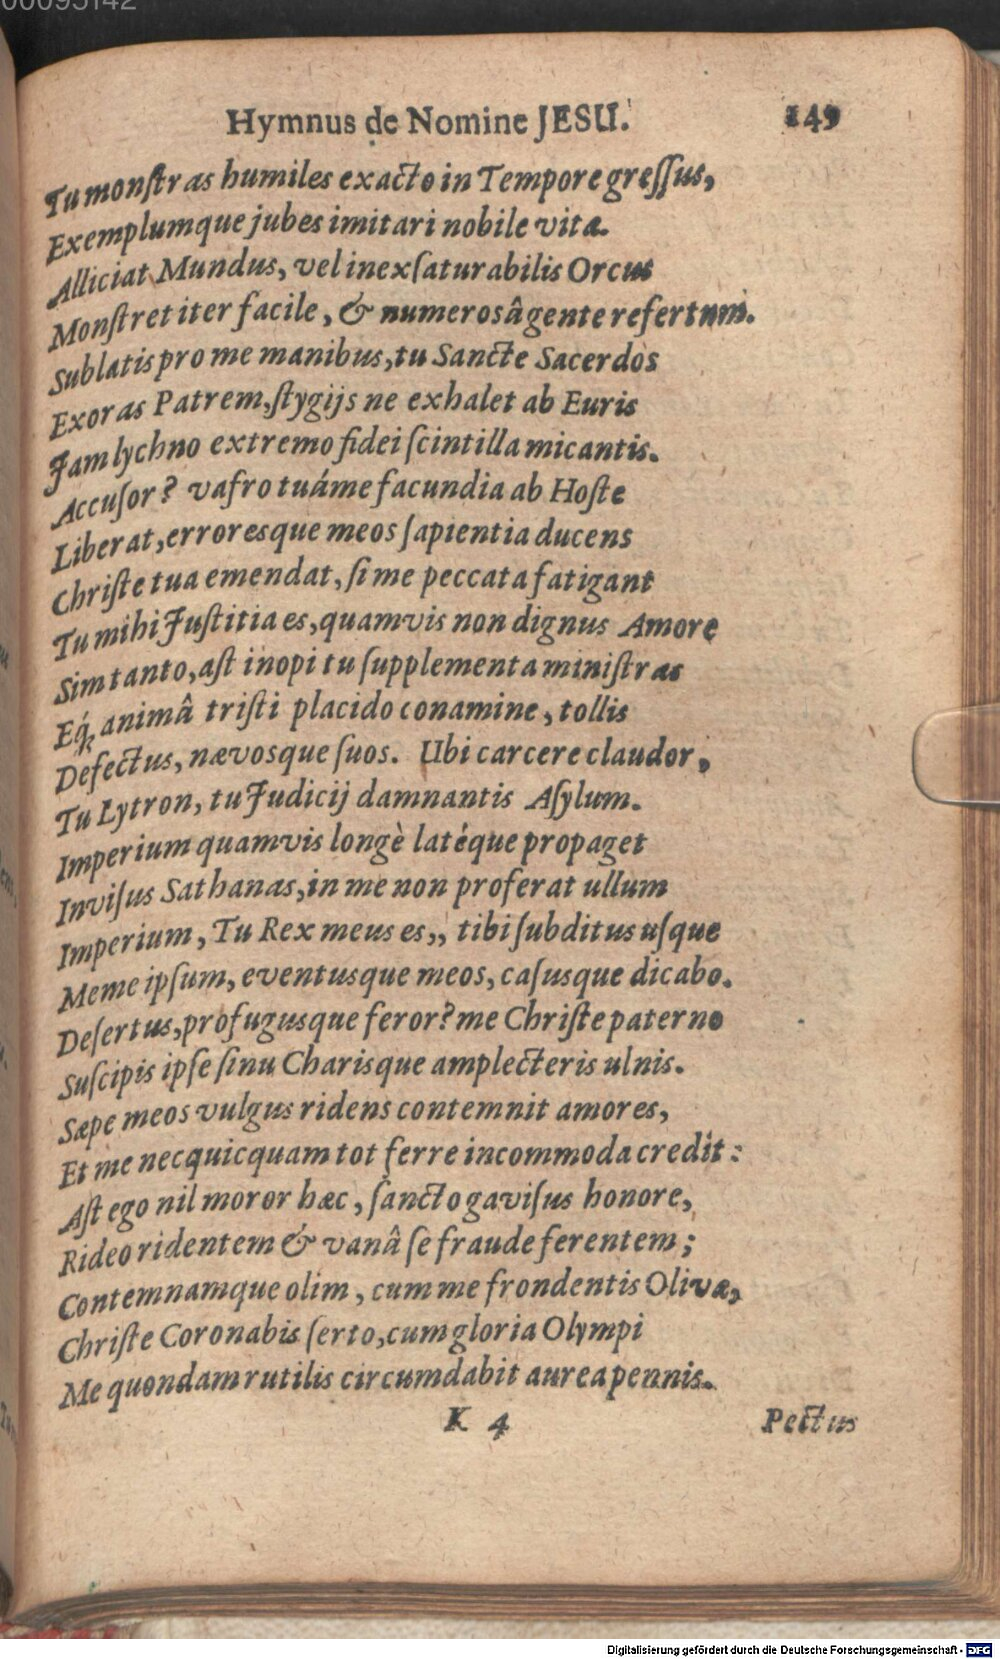 00095142
Hymnus de Nomine JESU. 149
Tu monſtras humiles exacto in Tempore greſſus,
Exemplumque jubes imitari nobile vitæ.
Alliciat Mundus, vel inexſaturabilis Orcus
Monſtret iter facile, & numerosâ gente refertum.
Sublatis pro me manibus, tu Sancte Sacerdos
Exoras Patrem, ſtygijs ne exhalet ab Euris
Jam lychno extremo fidei ſcintilla micantis.
Accuſor? vafro tuá me facundia ab Hoſte
Liberat, erroresque meos ſapientia ducens
Chriſte tua emendat, ſi me peccata fatigant
Tu mihi Juſtitia es, quamvis non dignus Amore
Sim tanto, aſt inopi tu ſupplementa miniſtras
Eq́; animâ triſti placido conamine, tollis
Defectus, nævosque ſuos. Ubi carcere claudor,
Tu Lytron, tu Judicij damnantis Aſylum.
Imperium quamvis longè latéque propaget
Inviſus Sathanas, in me non proferat ullum
Imperium, Tu Rex meus es,, tibi ſubditus uſque
Meme ipſum, eventusque meos, caſusque dicabo.
Deſertus, profugusque feror? me Chriſte paterno
Suſcipis ipſe ſinu Charisque amplecteris ulnis.
Sæpe meos vulgus ridens contemnit amores,
Et me necquicquam tot ferre incommoda credit:
Aſt ego nil moror hæc, ſancto gaviſus honore,
Rideo ridentem & vanâ ſe fraude ferentem;
Contemnamque olim, cum me frondentis Olivæ,
Chriſte Coronabis ſerto, cum gloria Olympi
Me quondam rutilis circumdabit aurea pennis.
K 4 Pectus
Digitalisierung gefördert durch die Deutsche Forschungsgemeinschaft - DFG